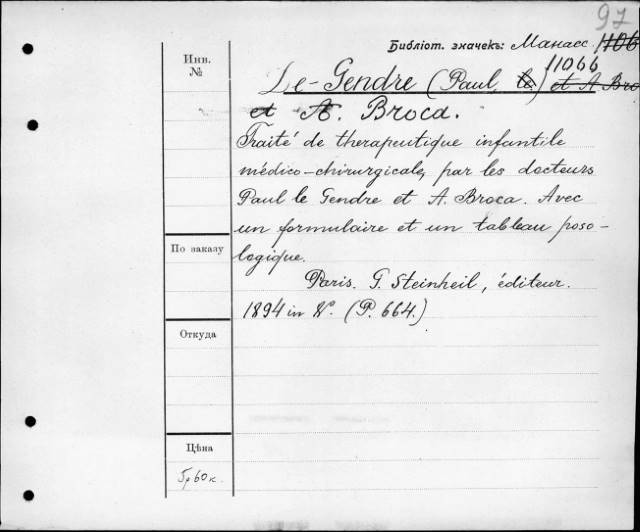 97
Библіот. значекъ: Манасс. 1106
11066
Инв.
№
Le-Gendre (Paul, le) et A Bro
et A. Broca.
Traité de therapeutique infantile
médico-chirurgicale, par les docteurs
Paul le Gendre et A. Broca. Avec
un formulaire et un tableau poso-
logique.
По заказу
Paris. G. Steinheil, éditeur.
1894 in 8°. (P. 664.)
Откуда
Цѣна
5р 60к.